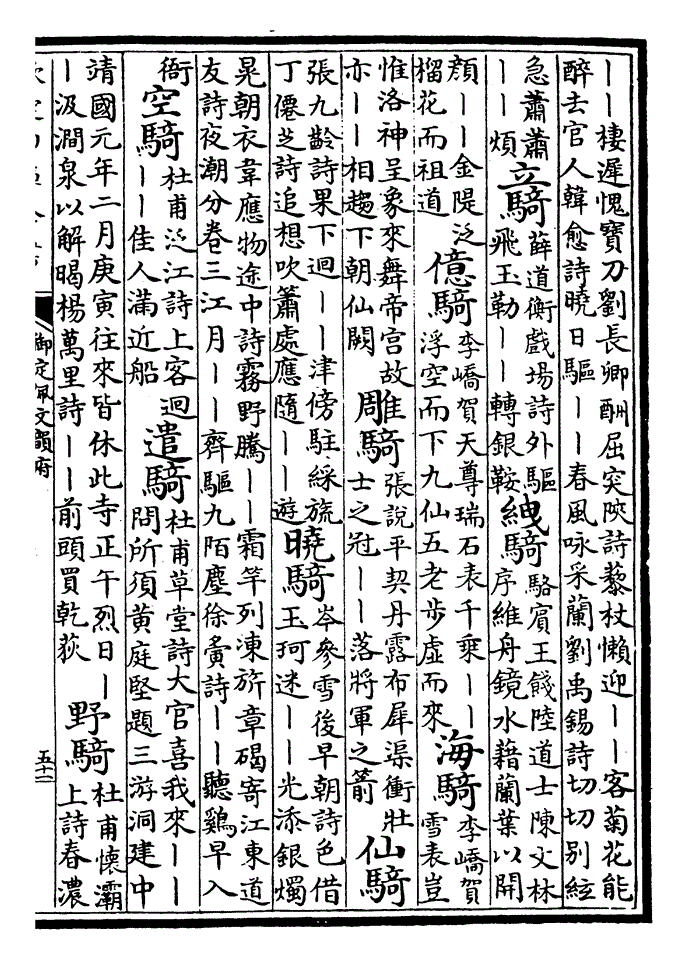 ——棲遲愧寶刀劉長卿酬屈突陜詩藜杖懶迎——客菊花能
醉去官人韓愈詩曉日驅——春風咏采蘭劉禹錫詩切切別絃
急蕭蕭
——煩
立騎
薛道衡戲場詩外驅
飛玉勒——轉銀鞍
絏騎
駱賓王餞陸道士陳文林
序維舟鏡水藉蘭葉以開
顏——金隄泛
榴花而祖道
億騎
李嶠賀天尊瑞石表千乘——
浮空而下九仙五老步虛而來
海騎
李嶠賀
雪表豈
惟洛神呈象來舞帝宫故
亦——相趨下朝仙闕
雕騎
張說平契丹露布犀渠衝壯
士之冠——落將軍之箭
仙騎
張九齡詩果下迴——津傍駐綵旐
丁僊芝詩追想吹簫處應隨——遊
曉騎
岑參雪後早朝詩色借
玉珂迷——光添銀燭
晃朝衣韋應物途中詩霧野騰——霜竿列凍旂章碣寄江東道
友詩夜潮分卷三江月——齊驅九陌塵徐夤詩——聽鷄早入
衙
空騎
杜甫泛江詩上客迴
——佳人滿近船
遣騎
杜甫草堂詩大官喜我來——
問所須黄庭堅題三游洞建中
靖國元年二月庚寅往來皆休此寺正午烈日—
—汲澗泉以解暍楊萬里詩——前頭買乾荻
野騎
杜甫懷灞
上詩春濃
御定佩文韻府
五十二